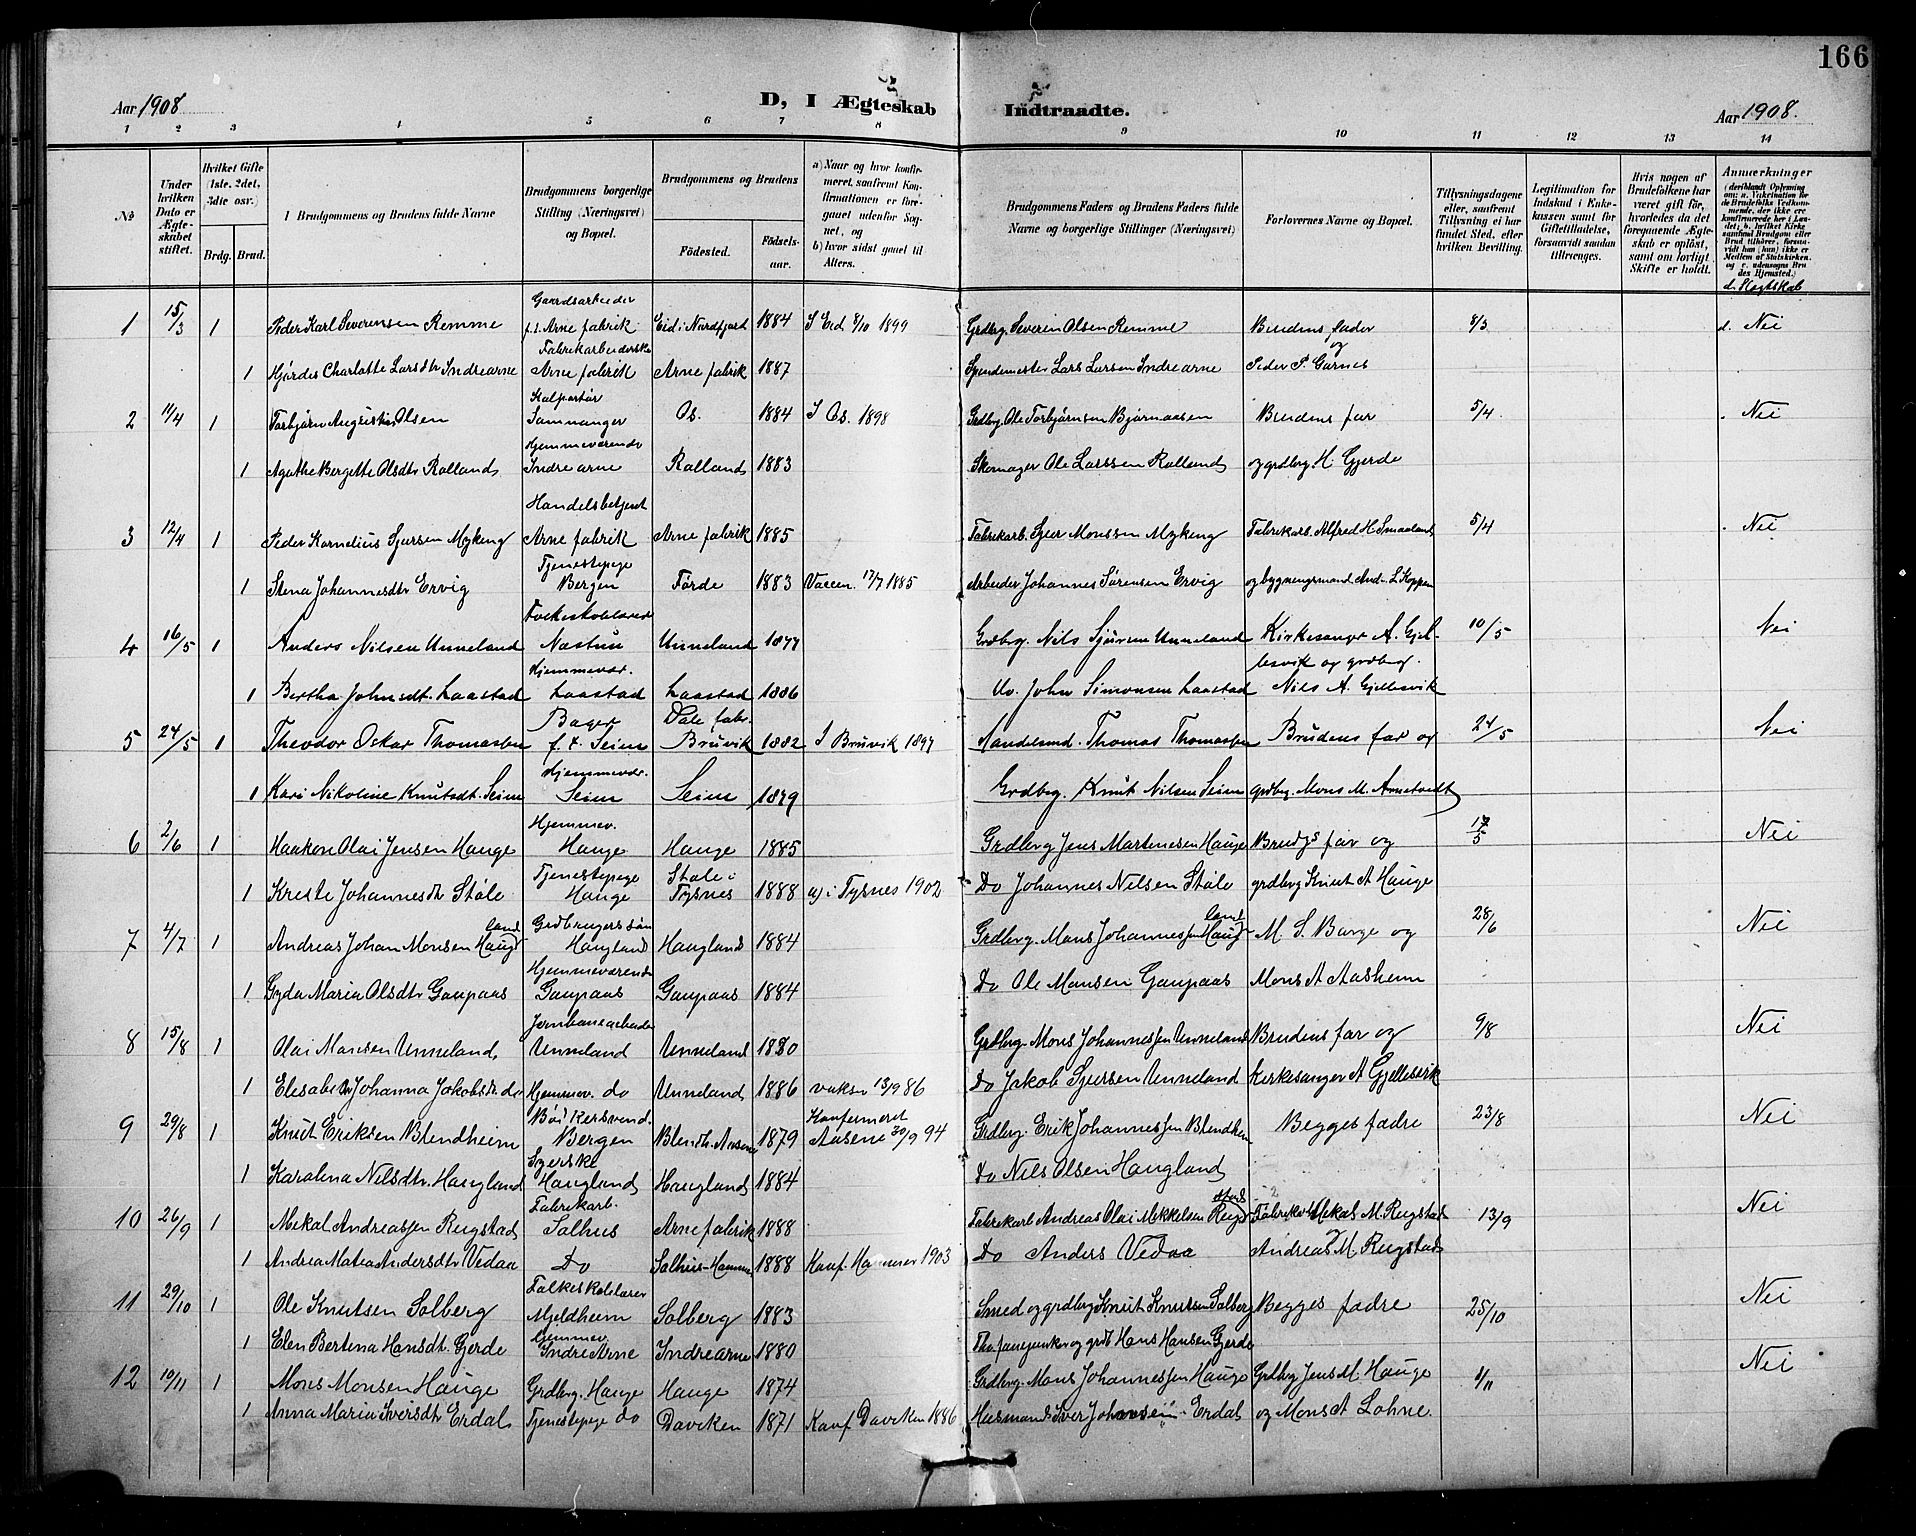 166
Aar 1908
D, I Ægteskab Indtraadte.
Aar 1908.
1 2 3 4 5 6 7 8 9 10 11 12 13 14
No
Under hvilken Dato er Ægteskabet stiftet.
Hvilket Gifte (1ste, 2det, 3die osv.)
Brdg. Brud.
Brudgommens og Brudens fulde Navne
Brudgommens borgerlige Stilling (Næringsvei) og Bopæl.
Brudgommens og Brudens
Fødested.
Fødselsaar.
a) Naar og hvor konfirmeret, saafremt Konfirmationen er foregaaet udenfor Sognet, og
b) hvor sidst gaaet til Alters.
Brudgommens Faders og Brudens Faders fulde Navne og borgerlige Stillinger (Næringsvei)
Forlovernes Navne og Bopæl.
Tillysningsdagene eller, saafremt Tillysning ei har fundet Sted, efter hvilken Bevilling.
Legitimation for Indskud i Enkekassen samt for Giftetilladelse, forsaavidt saadan tiltrænges.
Hvis nogen af Brudefolkene har været gift før, hvorledes da det foregaaende Ægteskab er opløst, samt om lovligt Skifte er holdt.
Anmærkninger
(deriblandt Oplysning om: a. Vakcination for de Brudefolks Vedkommende, der ikke ere konfirmerede her i Landet; b. hvilket Kirkesamfund Brudgom eller Brud tilhører, forsaavidt han (hun) ikke er Medlem af Statskirken, og c. udensogns Brudes Hjemsted.)
d. Slegtskab
1 15/3 1 Peder Karl Severensen Remme Gaardsarbeider f. t. Arne fabrik Eid i Nordfjord 1884 I Eid 8/10 1899 Grdbrg. Severin Olsen Remme Brudens fader og 8/3 d. Nei
1 Hjørdis Charlotte Larsdtr Indrearne Fabrikarbeiderske Arne fabrik Arne fabrik 1887 Spindemester Lars Larsen Indrearne Peder P. Garnes
2 11/4 1 Torbjørn Augustin Olsen Kolportør Samnanger Os. 1884 I Os. 1898 Grdbrg. Ole Torbjørnsen Bjørnaasen Brudens far 5/4 Nei
1 Agathe Bergette Olsdtr Rolland Hjemmeværende Indre arne Rolland 1883 Skomager Ole Larssen Rolland og grdbrg. H. Gjerde
3 12/4 1 Peder Kornelius Sjursen Myking Handelsbetjent Arne fabrik Arne fabrik 1885 Fabrikarb. Sjur Monssen Myking Fabrikarb. Alfred H. Smaaland 5/4 Nei
1 Stina Johannesdtr Ervig Tjenestepige Bergen Førde 1883 Vaccin. 17/7 1885 Arbeider Johannes Sørensen Ervig og bygningsmand And. L. Koppen
4 16/5 1 Anders Nilsen Unneland Folkeskolelærer Nastun Unneland 1877 Grdbrg. Nils Sjursen Unneland Kirkesanger A. Gjellesvik og grdbrg. 10/5 Nei
1 Bertha Johnsdt. Laastad Hjemmevær. Laastad Laastad 1886 Uv. John Simonsen Laastad Nils A. Gjellesvik
5 24/5 1 Theodor Oskar Thomassen Bager f. t. Seim Dale fabr. Bruvik 1882 I Bruvik 1897 Handelsmd. Thomas Thomassen Brudens far og 24/5 Nei
1 Kari Nikoline Knutsdt. Seim Hjemmevær. Seim Seim 1879 Grdbrg. Knut Nilsen Seim grdbrg. Mons M. Arnetvedt
6 2/6 1 Haakon Olai Jensen Hauge Hjemmev. Hauge Hauge 1885 Grdbrg Jens Martinesen Hauge Brudgs far og 17/5 Nei
1 Kreste Johannesdtr Støle Tjenestepige Hauge Støle i Tysnes 1888 a) i Tysnes 1902 Do Johannes Nilsen Støle grdbrg Knut A Hauge
7 4/7 1 Andreas Johan Monsen Haugland Grdbrugerssøn Haugland Haugland 1884 Grdbrg. Mons Johannessen Haugland M. S. Borge og 28/6 Nei
1 Gyda Maria Olsdtr Gaupaas Hjemmeværende Gaupaas Gaupaas 1884 Do Ole Monsen Gaupaas Mons A Aasheim
8 15/8 1 Olai Monsen Unneland Jernbanearbeider Unneland Unneland 1880 Grdbrg. Mons Johannessen Unneland Brudens far og 9/8 Nei
1 Elisabeth Johanna Jakobsdtr do Hjemmev. do Unneland 1886 vaksin 13/9 86 Do Jakob Sjursen Unneland kirkesanger A Gjellesvik
9 29/8 1 Knut Eriksen Blendheim Bødkersvend Bergen Blendh. Aasene 1879 Konfirmeret Aasene 30/9 94 Grdbrg. Erik Johannessen Blendheim Begges fædre 23/8 Nei
1 Karolina Nilsdtr. Haugland Syerske Haugland Haugland 1884 Do Nils Olsen Haugland
10 26/9 1 Mikal Andreassen Rugstad Fabrikarb. Salhus Arne fabrik 1888 Fabrikarb Andreas Olai Mikkelsen Rugstad Fabrikarb Mikal M. Rugstad 13/9 Nei
1 Andrea Matea Andersdtr Vedaa Do Salhus-Hammer 1888 Konf. Hammer 1903 Do Anders Vedaa Andreas M. Rugstad
11 29/10 1 Ole Knutsen Solberg Folkeskolelærer Mjeldheim Solberg 1883 Smed og grdbrg Knut Knutsen Solberg Begges fædre 25/10 Nei
1 Elen Bertina Hansdt. Gjerde Hjemmev. Indre Arne Indrearne 1880 Hans Hansen Gjerde
12 10/11 1 Mons Monsen Hauge Grdbrg. Hauge Hauge 1874 Grdbrg Mons Johannessen Hauge Grdbrg Jens M. Hauge 1/11 Nei
1 Anna Maria Iversdtr Erdal Tjenestepige do Daviken 1871 Konf Daviken 1886 Husmand Iver Johansen Erdal og Mons A Lohne.